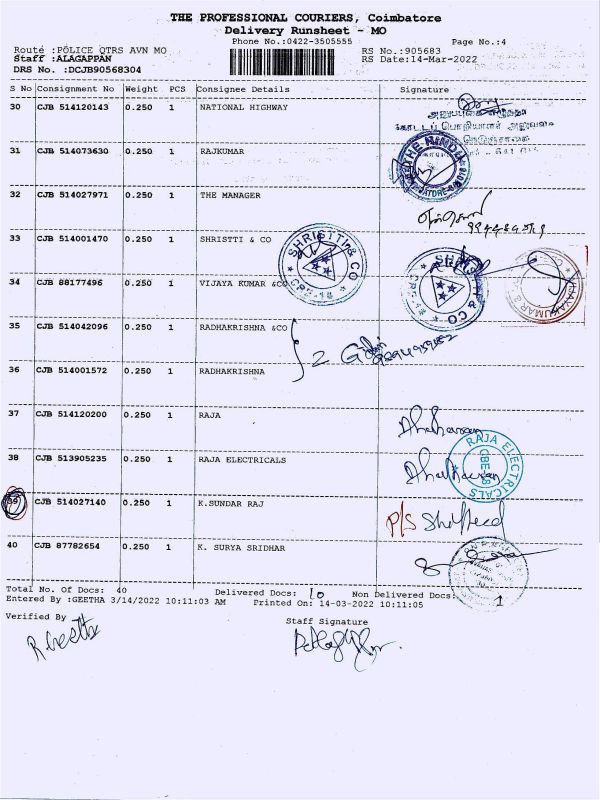 THE PROFESSIONAL COURIERS, Coimbatore
Delivery Runsheet - MO
Phone No.:0422-3505555
Page No.:4
Route :POLICE QTRS AVN MO
RS No.:905683
Staff :ALAGAPPAN
RS Date:14-Mar-2022
DRS No. :DCJB90568304
S No Consignment No Weight PCS Consignee Details Signature
30 CJB 514120143 0.250 1 NATIONAL HIGHWAY
31 CJB 514073630 0.250 1 RAJKUMAR
THE HINDU
32 CJB 514027971 0.250 1 THE MANAGER
33 CJB 514001470 0.250 1 SHRISTTI & CO
SHRISTTI & CO
CBE-18
34 CJB 88177496 0.250 1 VIJAYA KUMAR &CO
35 CJB 514042096 0.250 1 RADHAKRISHNA &CO
2
36 CJB 514001572 0.250 1 RADHAKRISHNA
37 CJB 514120200 0.250 1 RAJA
38 CJB 513905235 0.250 1 RAJA ELECTRICALS
RAJA ELECTRICALS
CBE-18
39 CJB 514027140 0.250 1 K.SUNDAR RAJ
P/S Shifted
40 CJB 87782654 0.250 1 K. SURYA SRIDHAR
Total No. Of Docs: 40 Delivered Docs: 10 Non Delivered Docs: 1
Entered By :GEETHA 3/14/2022 10:11:03 AM Printed On: 14-03-2022 10:11:05
Verified By Staff Signature